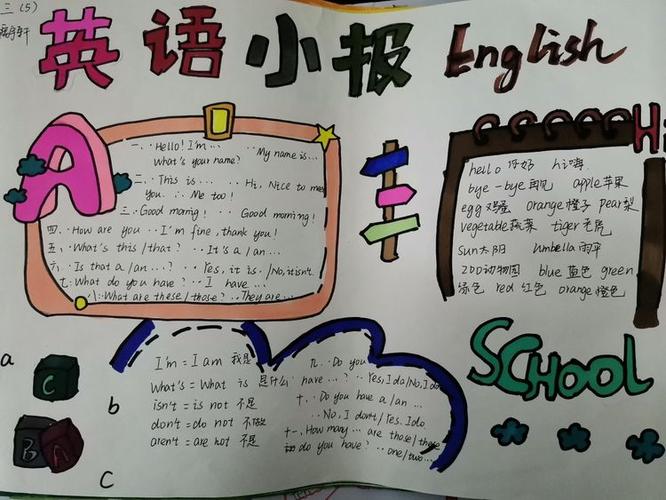 三(5)
英语小报 English
A
一、·Hello! I'm... ··My name is...
What's your name?
二、·This is... ··Hi, Nice to meet
you. ·Me too!
三、·Good mornig! ··Good morning!
四、·How are you ··I'm fine, thank you!
五、·What's this/that? ··It's a/an...
六、·Is that a/an...? ··Yes, it is./No, it isn't.
七:What do you have? ·I have...
八:What are these/those? ·They are...
Hi
hello 你好 hi 嗨
bye-bye 再见 apple 苹果
egg 鸡蛋 orange 橙子 pear 梨
vegetable 蔬菜 tiger 老虎
sun 太阳 umbella 雨伞
zoo 动物园 blue 蓝色 green
绿色 red 红色 orange 橙色
I'm = I am 我是
What's = What is 是什么
isn't = is not 不是
don't = do not 不做
aren't = are not 不是
九、·Do you
have...? ··Yes, I do/No, I don
十、·Do you have a/an...
··No, I don't/Yes. I do.
十一、How many... are those/these
do you have? ··one/two...
SCHOOL
a
C
B A
b
C